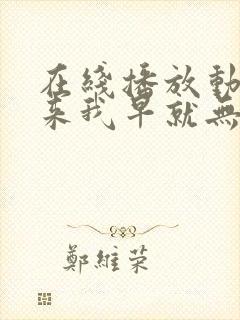 在綫播放動
来我早就無
鄭維荣